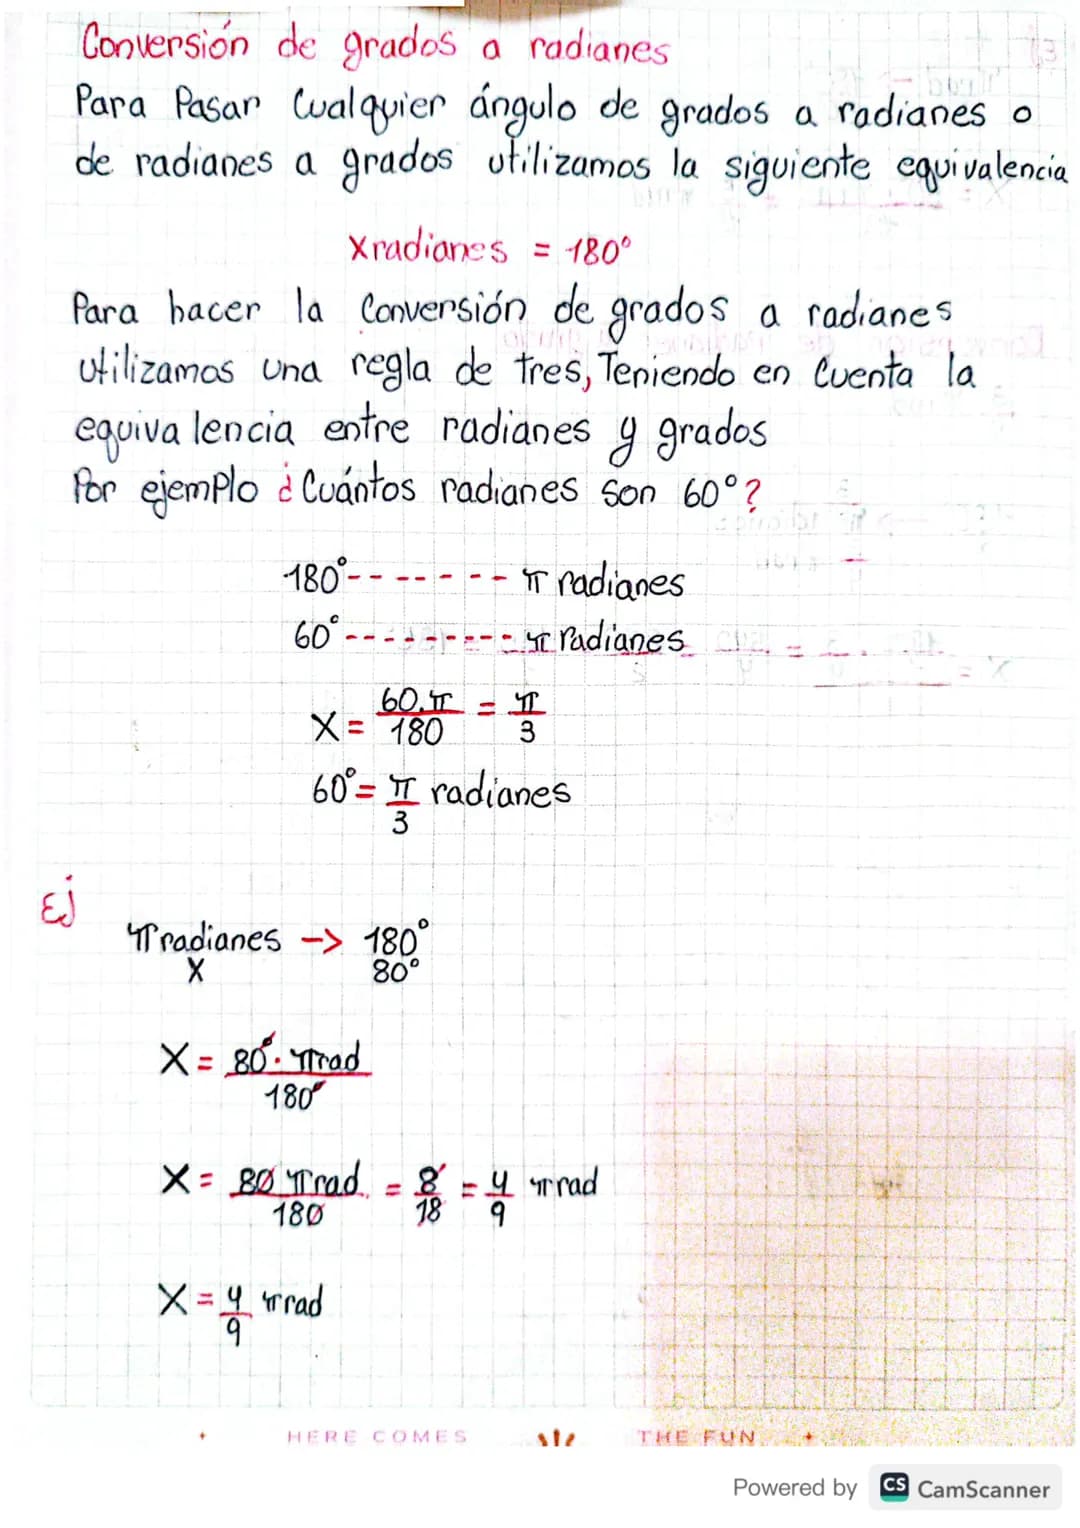 Conversión de grados a radianes
Para Pasar Cualquier ángulo de grados a radianes o
de radianes a grados utilizamos la siguiente equivalencia
Xradianes = 180°
Para hacer la Conversión de grados a radianes
utilizamos una regla de tres, Teniendo en Cuenta la
equivalencia entre radianes y grados
Por ejemplo ¿Cuántos radianes son 60°?
180°-------- π radianes
60°--------- π radianes
X = 60.π/180 = π/3
60° = π/3 radianes
Ej
π radianes -> 180°
X 80°
X = 80°. π rad/180°
X = 80 π rad/180 = 8/18 = 4/9 π rad
X = 4/9 π rad
HERE COMES THE FUN
Powered by CS CamScanner